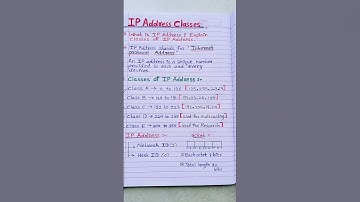 IP Address Classes
What is IP Address ? Explain
Classes of IP Address.
IP Address stands for "Internet
protocol Address"
An IP address is a unique number
provided to each and every
devices.
Classes of IP Address :-
Class A → 0 to 126
Class B → 128 to 191
Class C → 192 to 223
Class D → 224 to 239 [used for multicasting]
Class E → 240 to 255 [used for Research]
IP Address :-
Network ID
Host ID
Each octet 8 bits
Total length 32
bits